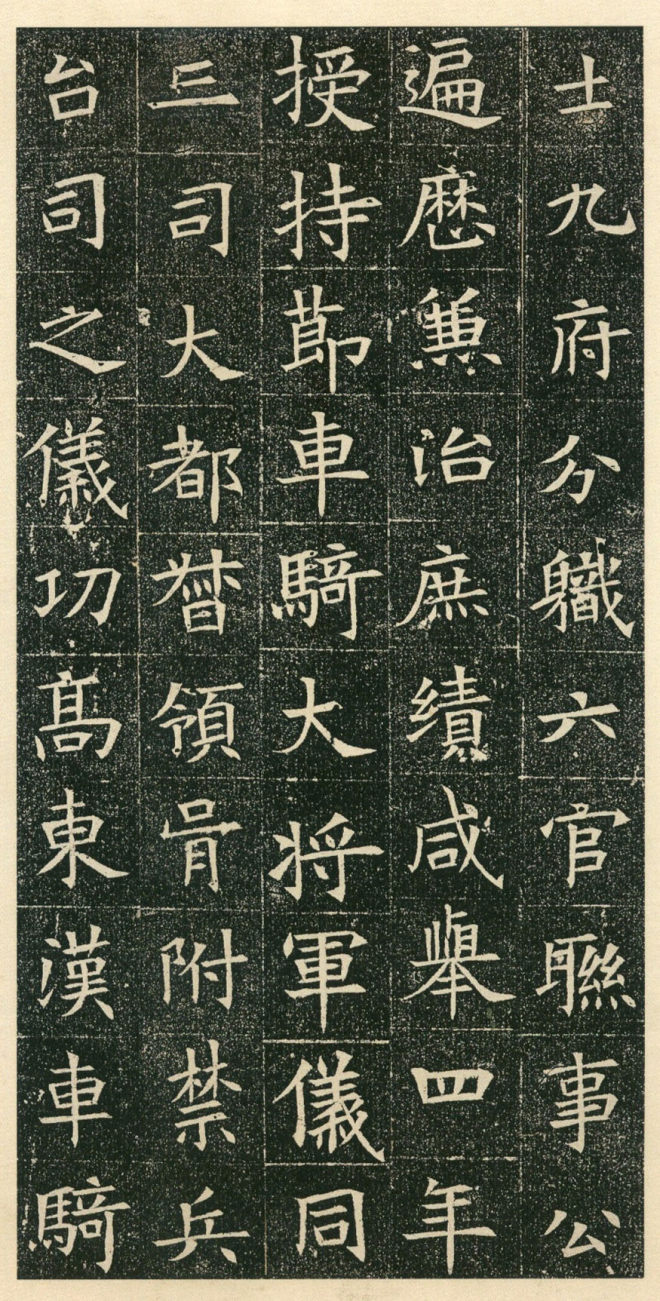 士九府分職六官聯事公
遍歷兼治庶績咸舉四年
授持節車騎大将軍儀同
三司大都督領骨附禁兵
台司之儀功高東漢車騎